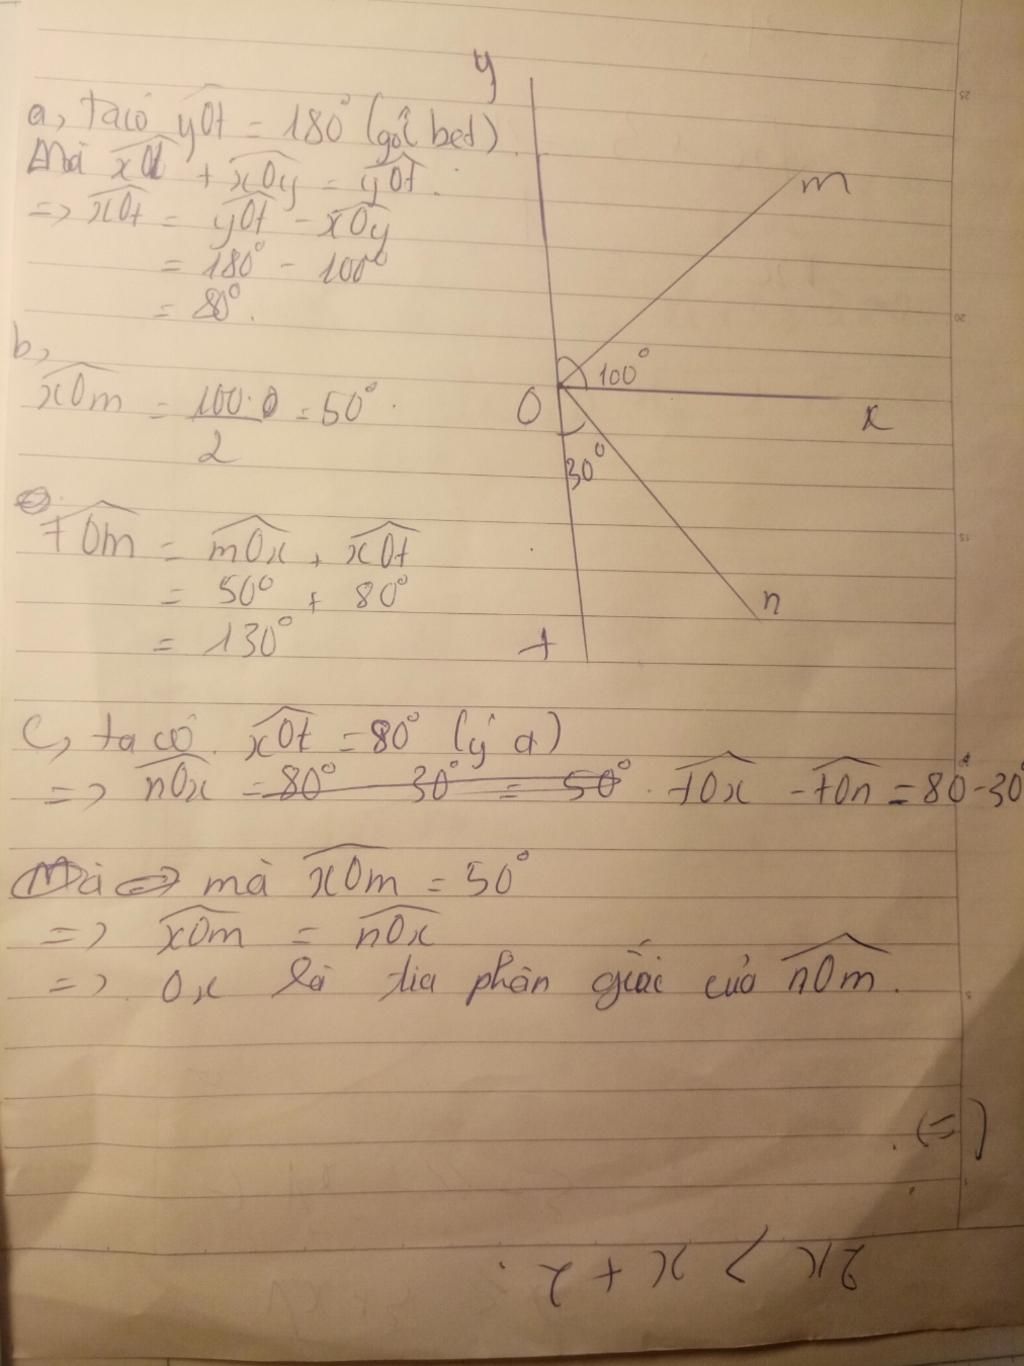 a, ta có yOt = 180° (góc bẹt).
Mà xOt + xOy = yOt.
=> xOt = yOt - xOy
= 180° - 100°
= 80°.
b,
xOm = 100.0 / 2 = 50°.
tOm = mOx + xOt
= 50° + 80°
= 130°
c, ta có xOt = 80° (ý a)
=> nOx = 80° 30° = 50°. tOx - tOn = 80° - 30°
Mà => mà xOm = 50°
=> xOm = nOx
=> Ox là tia phân giác của nOm.
y
m
100°
O
x
30°
n
t
(=).
2x > x + 2.
25
20
15